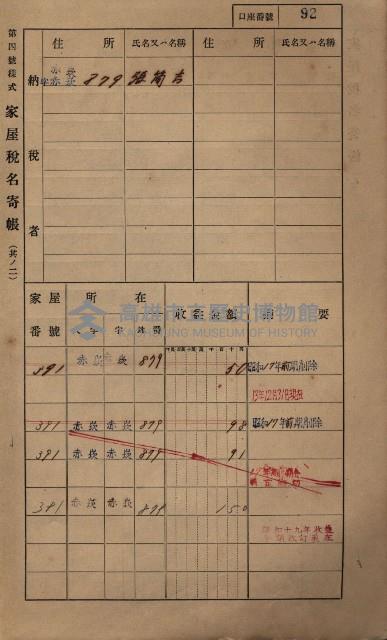 口座番號 92
第四號樣式 家屋稅名寄帳 (其ノ二)
住所 氏名又ハ名稱 住所 氏名又ハ名稱
納稅者
赤崁
字赤崁 879 張簡吉
家屋番號 所在 摘要
大字 字 地番
391 赤崁 879 50 昭和17年前期削除
13年12月31日現在
391 赤崁 赤崁 879 98 昭和17年前期削除
391 赤崁 赤崁 879 91
391 赤崁 赤崁 879 150
昭和十九年
高雄市立歷史博物館
KAOHSIUNG MUSEUM OF HISTORY